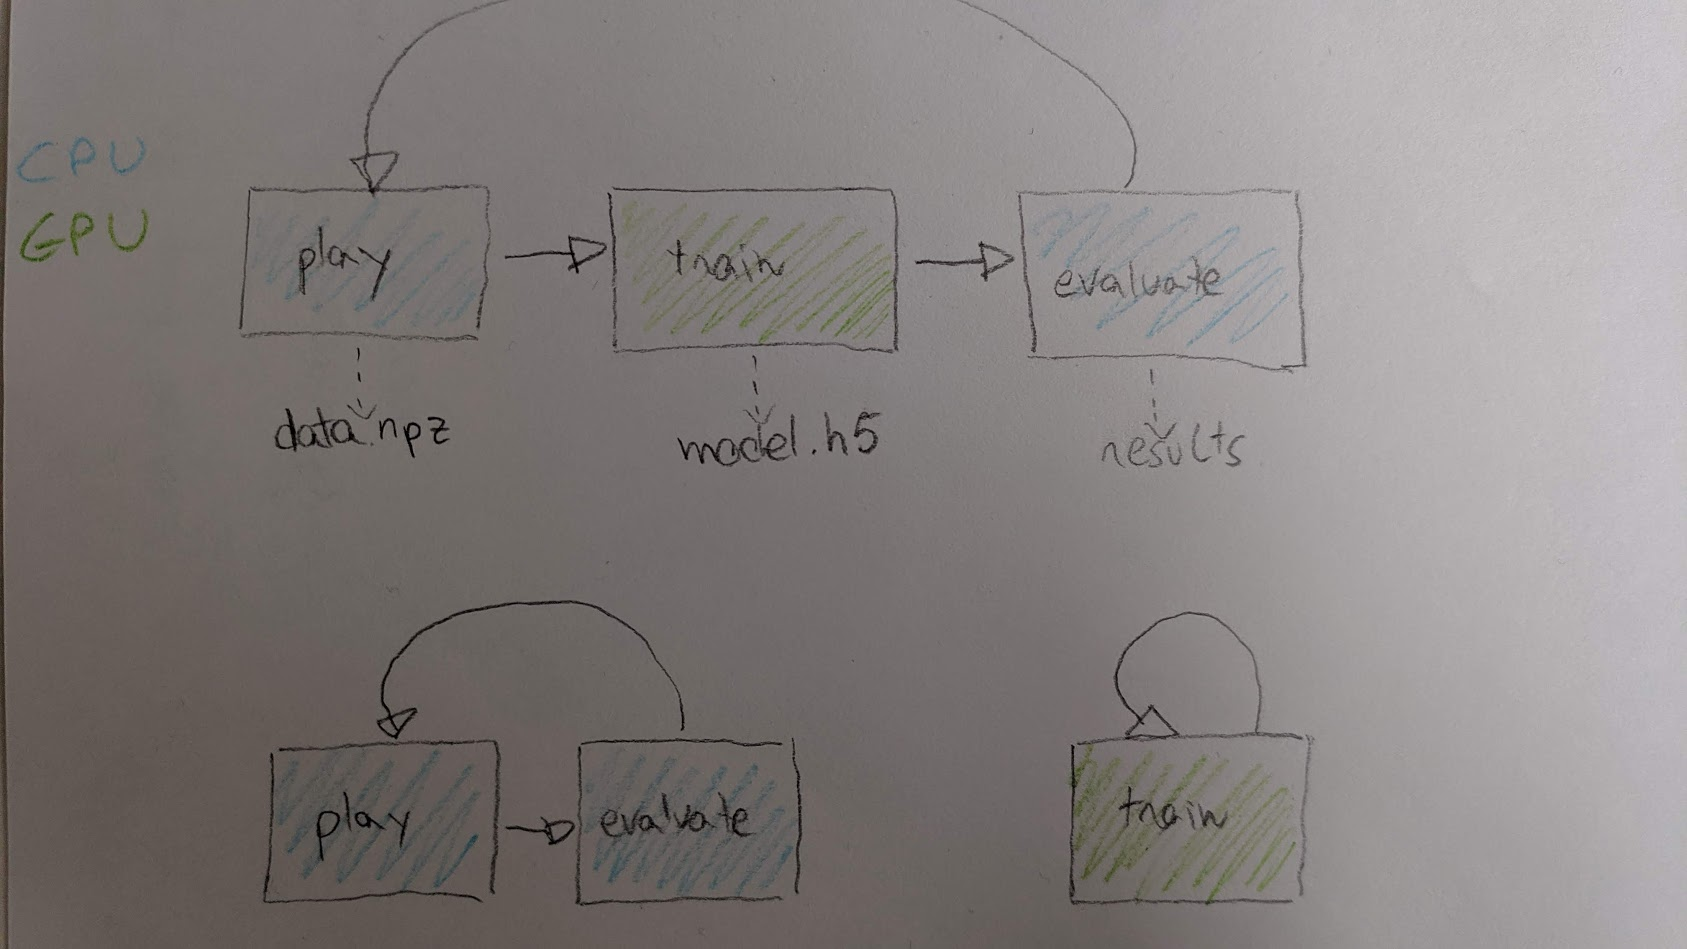 CPU
GPU
play
train
evaluate
data.npz
model.h5
results
play
evaluate
train